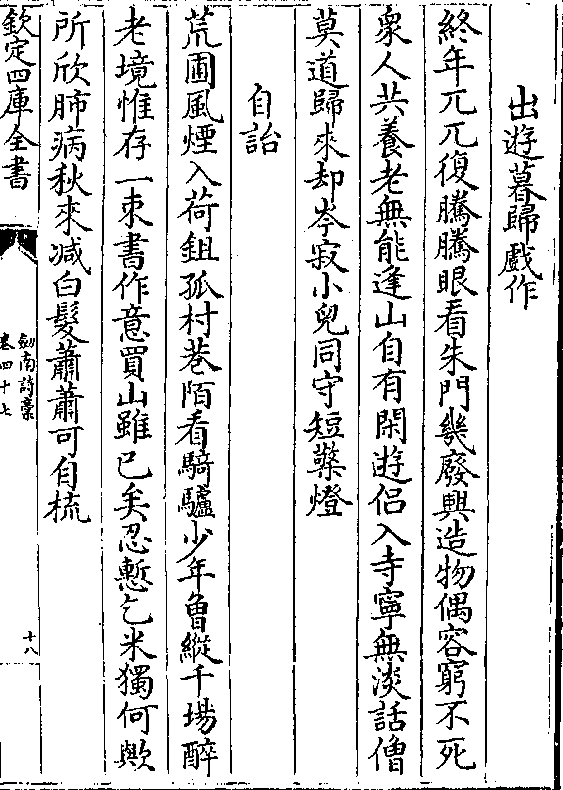 出遊暮歸戲作
終年兀兀復騰騰眼看朱門幾廢興造物偶容窮不死
衆人共養老無能逢山自有閑遊侣入寺寧無淡話僧
莫道歸來却岑寂小兒同守短檠燈
自詒
荒圃風煙入荷鉏孤村巷陌看騎驢少年曾縱千場醉
老境惟存一束書作意買山雖已矣忍慙乞米獨何歟
所欣肺病秋來减白髮蕭蕭可自梳
欽定四庫全書
劍南詩稾
卷四十七
十八